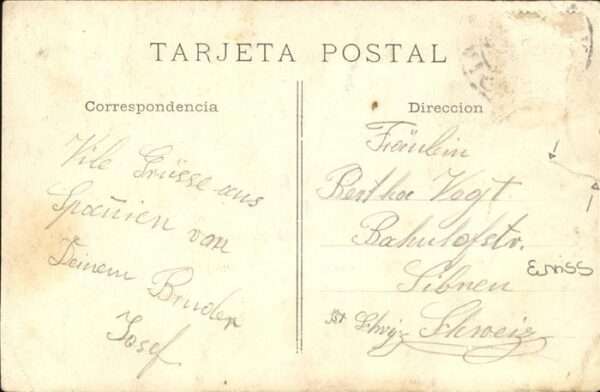 TARJETA POSTAL
Correspondencia
Vile Grüsse aus
Spanien von
Deinem Bruder
Josef
Direccion
Fräulein
Bertha Vogt
Bahnhofstr.
Sibnen
Kt Schwyz Schweiz